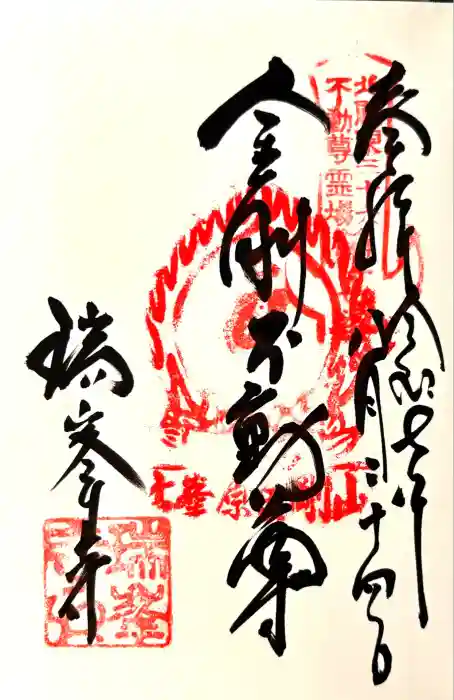 奉拝 令和七年
八月二十四日
北関東三十六
不動尊霊場
金剛不動尊
金剛山
瑞峯寺